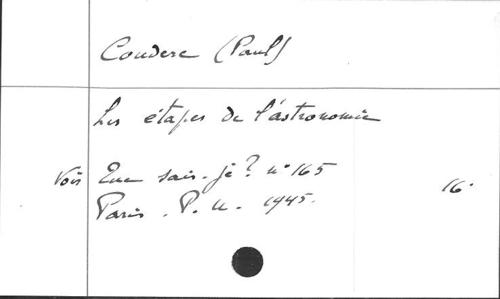 Couderc (Paul)
Les étapes de l'astronomie
Voir Que sais-je? n° 165
Paris. P. U. 1945. 16°